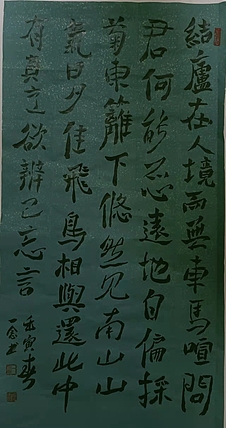 結廬在人境而無車馬喧問
君何能尔心遠地自偏採
菊東籬下悠然見南山山
氣日夕佳飛鳥相與還此中
有真意欲辨已忘言
壬寅春